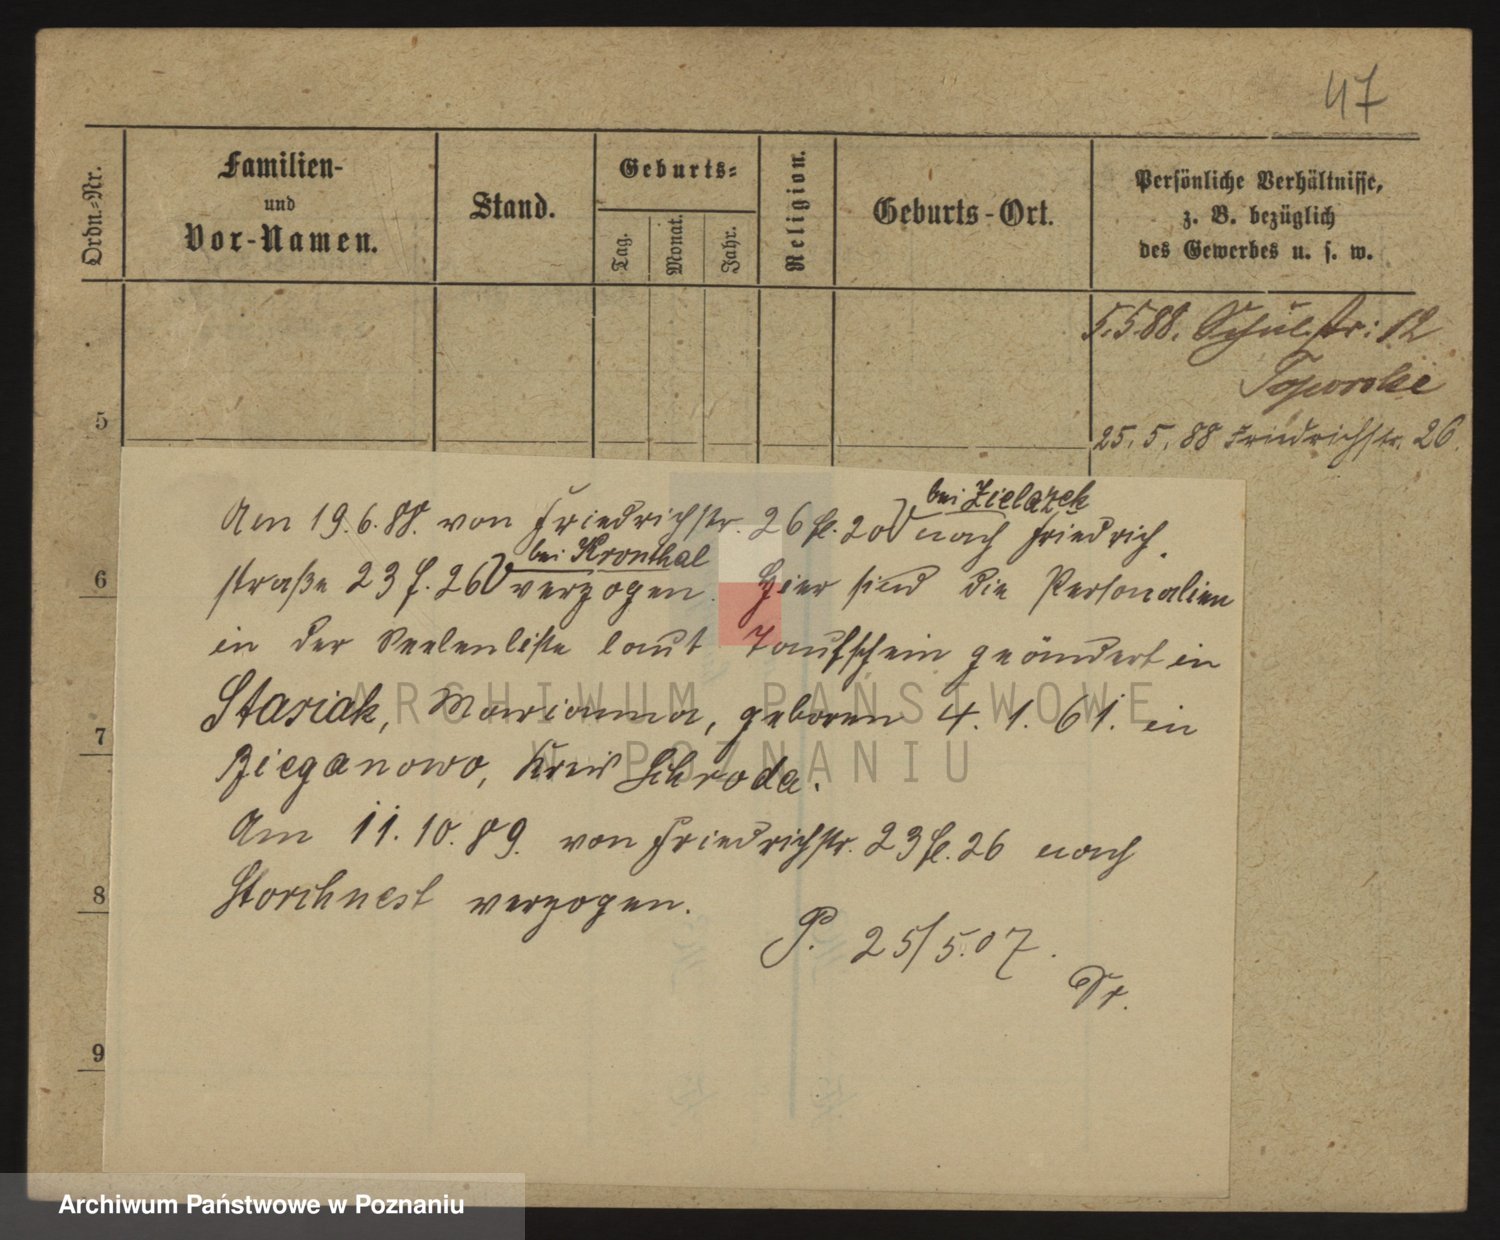 47
Ordn.-Nr.
Familien-
und
Vor-Namen.
Stand.
Geburts-
Tag.
Monat.
Jahr.
Religion.
Geburts-Ort.
Persönliche Verhältnisse,
z. B. bezüglich
des Gewerbes u. s. w.
5.5.88. Schulstr: 12
Toporski
5
25. 5. 88 Friedrichstr. 26.
bei Zielazek
Am 19.6.88. von Friedrichstr. 26 f. 20 nach Friedrich
bei Kronthal
6
straße 23 f. 26 verzogen. Hier sind die Personalien
in der Seelenliste laut Taufschein geändert in
Stasiak, Marianna, geboren 4. 1. 61. in
7
Bieganowo, Kreis Schroda.
Am 11. 10. 89. von Friedrichstr. 23 f. 26 nach
8
Storchnest verzogen.
P. 25/5.07.
9
ARCHIWUM PAŃSTWOWE
W POZNANIU
Archiwum Państwowe w Poznaniu